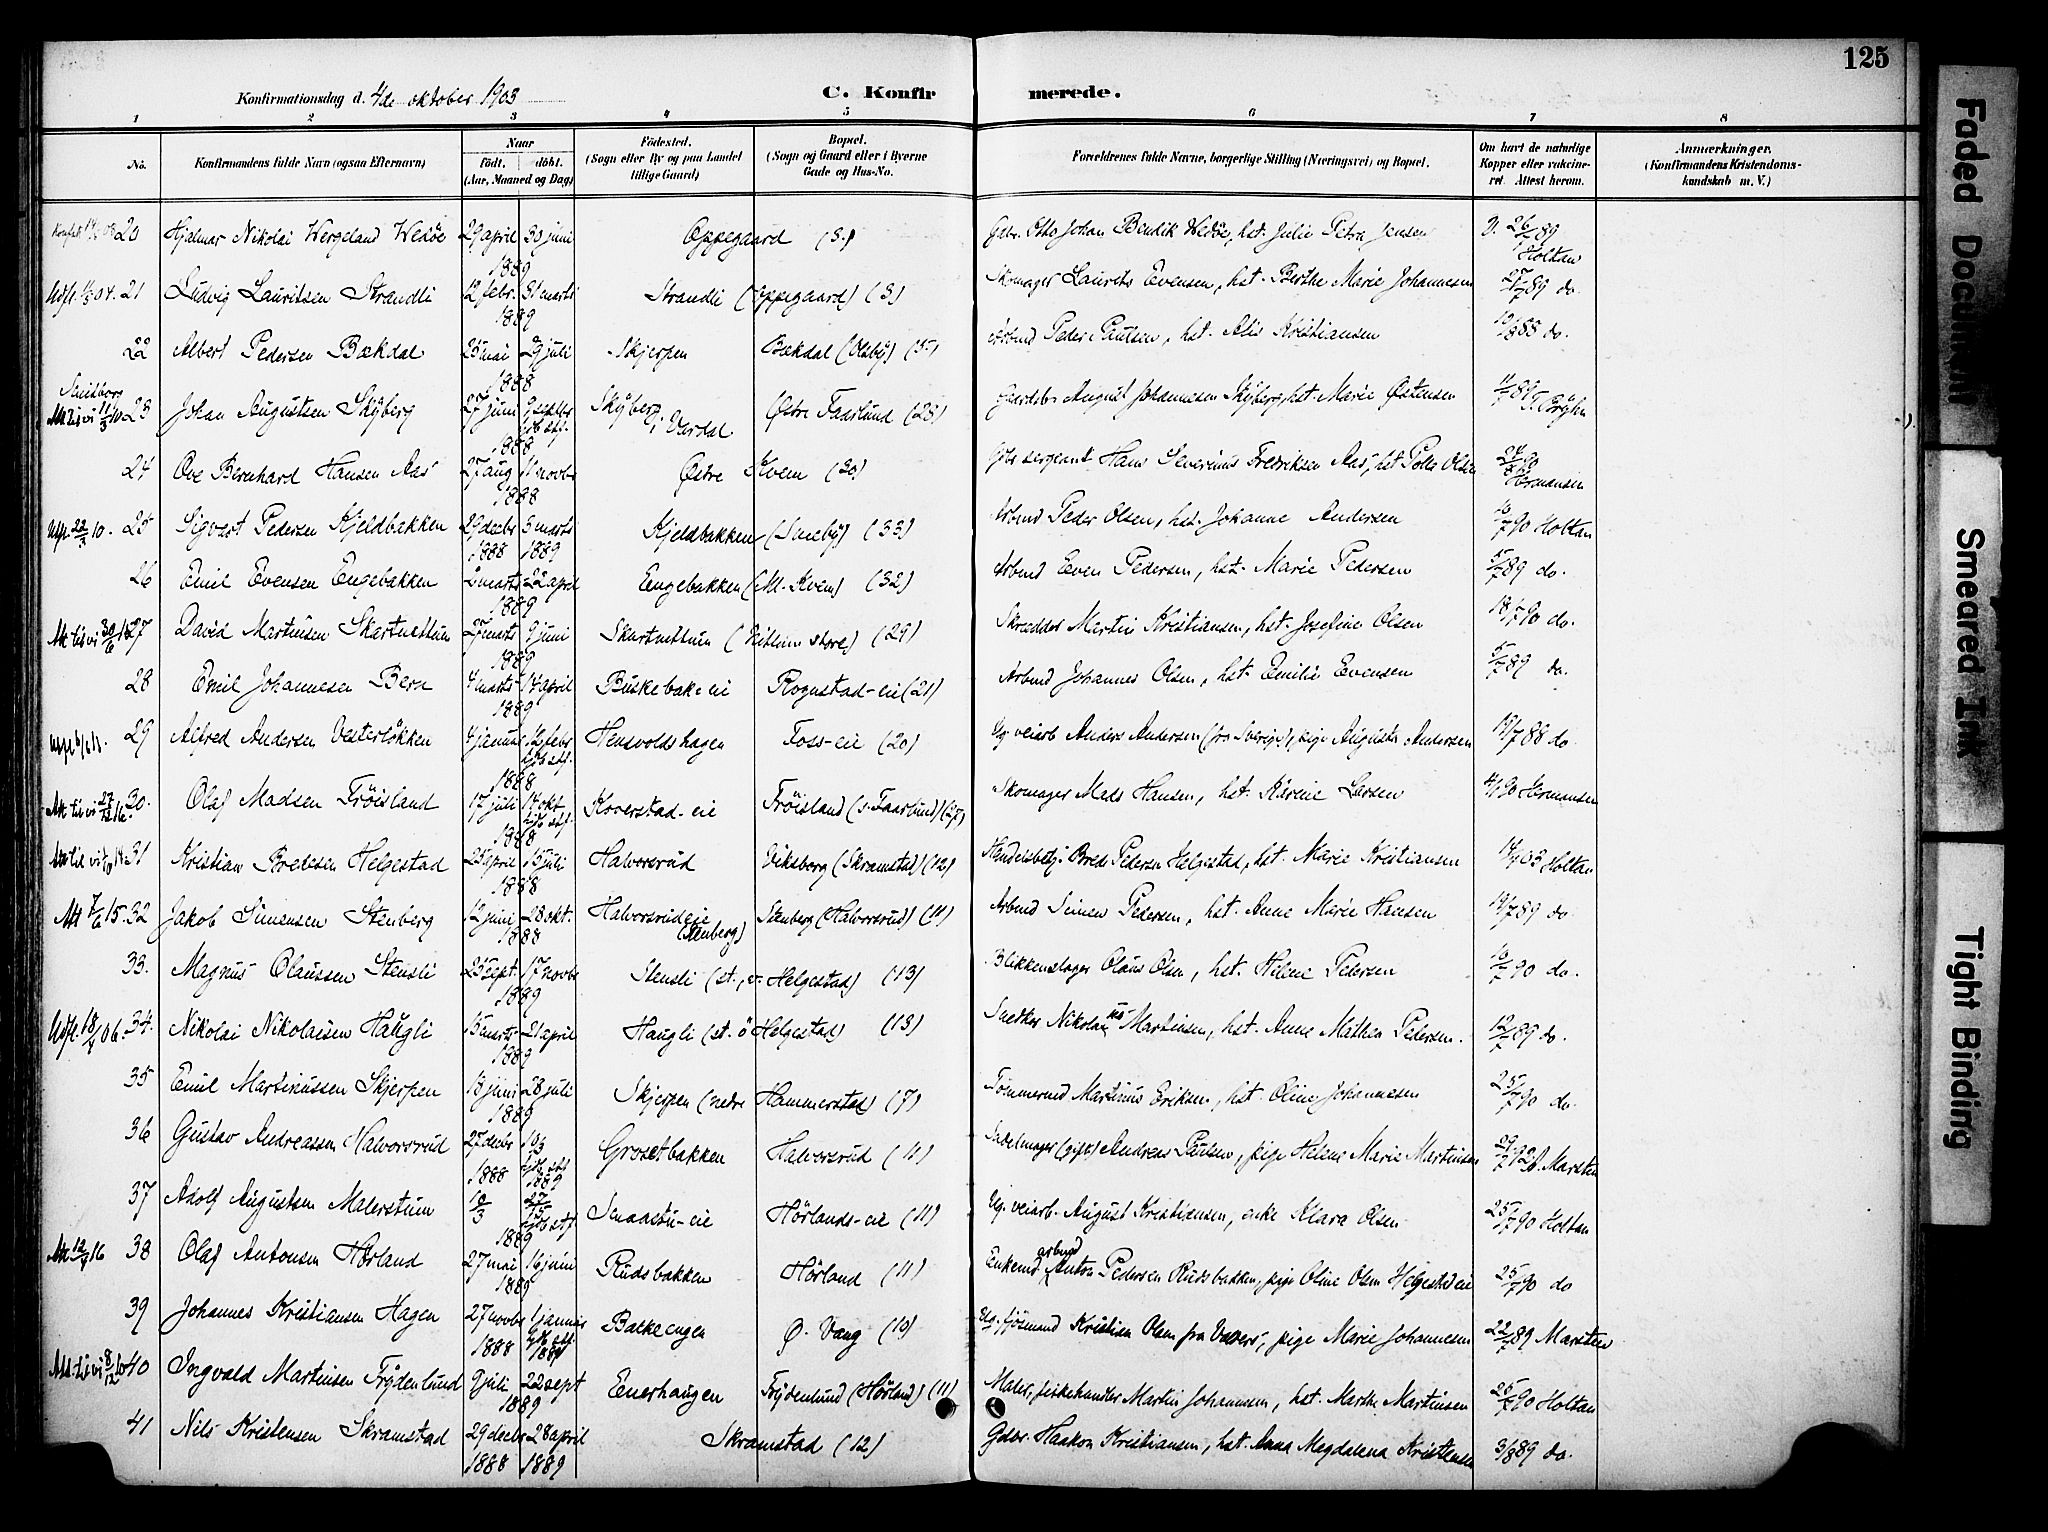 125
Konfirmationsdag d. 4de oktober 1903
C. Konfirmerede.
1 2 3 4 5 6 7 8
No. Konfirmandens fulde Navn (ogsaa Efternavn) Naar født, døbt. (Aar, Maaned og Dag) Fødested. (Sogn eller By og paa Landet tillige Gaard) Bopæl. (Sogn og Gaard eller i Byerne Gade og Hus-No. Forældrenes fulde Navne, borgerlige Stilling (Næringsvei) og Bopæl. Om havt de naturlige Kopper eller vaccineret. Attest herom. Anmærkninger. (Konfirmandens Kristendomskundskab m. V.)
20 Hjalmar Nikolai Wergeland Wedøe 29 april 30 juni 1889 Oppegaard (3.) Gbr. Otto Johan Bendik Wedøe, hst. Julie Petra Jensen 26/ 89 Holtan
21 Ludvig Lauritsen Strandli 12 febr. 31 marts 1889 Strandli (Oppegaard) (3) Skomager Laurits Evensen, hst. Berthe Marie Johannesen 27/7 89 do.
22 Albert Pedersen Bækdal 25 mai 29 juli 1888 Skjerpen Bækdal (Olsby) (35) Arbmd Peder Paulsen, hst. Alis Kristiansen 88 do.
23 Johan Augustsen Skyberg 27 juni 9 septbr 1888 Skyberg i Vardal Østre Faarlund (28) Gaardbr August Johannesen Skyberg, hst. Marie Østensen 89
24 Ove Bernhard Hansen Aas 27 aug 11 novbr 1888 Østre Kvem (30) Gbr sergeant Hans Severinus Fredriksen Aas, hst. Olsen 24/ 90 Hermansen
25 Sigvart Pedersen Kjeldbakken 29 decbr 3 marts 1888 1889 Kjeldbakken (Sneby) (33) Arbmd Peder Olsen, hst. Johanne Andersen 16/7 90 Holtan
26 Emil Evensen Engebakken 2 marts 22 april 1889 Engebakken (M. Kvem) (32) Arbmd Even Pedersen, hst. Marie Pedersen 5/7 89 do.
27 David Martinsen Skartnettum 27 marts 9 juni 1889 Skartnettum (Nettum store) (29) Skrædder Martin Kristiansen, hst. Josefine Olsen 18/7 90 do.
28 Emil Johannesen Bern 4 marts 14 april 1889 Buskebak-eie Rognstad-eie (21) Arbmd Johannes Olsen, hst. Emilie Evensen 5/7 89 do.
29 Alfred Andersen Vesterløkken 4 januar 12 febr 1888 Hensvoldshagen Foss-eie (20) Ug. veiarb Anders Andersen (fra Sverige), pige Augusta Andersen 19/7 88 do.
30. Olaf Madsen Frøisland 17 juli 14 okt 1888 Koverstad-eie Frøisland (v. Faarlund) (27) Skomager Mads Hansen, hst. Karine Larsen 4/ 90 Hermansen
31 Kristian Bredesen Helgestad 25 april 15 juli 1888 Halvorsrud Vikeberg (Skramstad) (12) Handelsbetj. Brede Pedersen Helgestad, hst. Marie Kristiansen 14/ 03 Holtan
32 Jakob Simensen Stenberg 12 juni 28 okt. 1888 Halvorsrudeie (Stenberg) Stenberg (Halvorsrud) (11) Arbmd Simen Pedersen, hst. Anne Marie Hansen 19/7 89 do.
33. Magnus Olaussen Stensli 25 sept. 17 novbr 1889 Stensli (st., v. Helgestad) (13) Blikkenslager Olaus Olsen, hst. Helene Pedersen 16/7 90 do.
34. Nikolai Nikolaisen Haugli 15 marts 21 april 1889 Haugli (st. ö Helgestad) (13) Snekker Nikolaus Martinsen, hst. Anne Mathea Pedersen. 12/7 89 do.
35 Emil Martinussen Skjerpen 18 juni 28 juli 1889 Skjerpen (nedre Hammerstad) (7) Tømmermd Martinus Eriksen, hst. Oline Johannesen 25/7 90 do.
36 Gustav Andreassen Halvorsrud 27 decbr 10/3 1888 1889 Grosetbakken Halvorsrud (11) Sadelmager (gift) Andreas Paulsen, pige Helene Marie Martinsen 29/7 92
37 Adolf Augustsen Malerstuen 10/3 1889 Smaastu-eie Hørlands-eie (11) Ug. veiarb. August Kristiansen, enke Klara Olsen 25/7 90 Holtan
38 Olaf Antonsen Hørland 27 mai 16 juni 1889 Rudsbakken Hørland (11) Enkemd arbmd Anton Pedersen Rudsbakken, pige Oline Olsen Helgestadeie 25/7 90 do
39 Johannes Kristiansen Hagen 27 novbr 1 januar 1888 1889 Balkeengen Ø. Vang (10) Ug. fjøsmand Kristian Olsen fra Vaaers, pige Marie Johannesen 22/7 89
40 Ingvald Martinsen Frydenlund 9 juli 22 sept 1889 Enerhaugen Frydenlund (Hørland) (11) Maler, fiskehandler Martin Johannesen, hst. Marthe Martinsen 25/7 90 Holtan
41 Nils Kristensen Skramstad 29 decbr 28 april 1888 1889 Skramstad (12) Gdbr. Haakon Kristiansen, hst. Anna Magdalena Kristensen 3/8 89 do.
Faded Document
Smeared Ink
Tight Binding